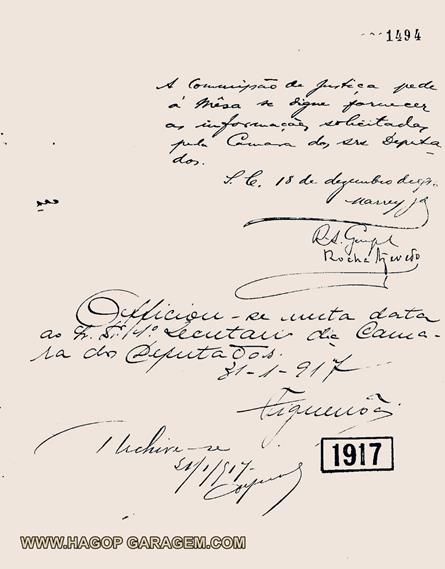 1494
A Commissão de Justiça pede
á Mêsa se digne fornecer
as informações solicitadas
pela Camara dos srs Deputa-
dos.
S. C. 18 de dezembro de
Marrey Jr
Rocha Azevedo
Officiou-se nesta data
ao Sr. 1º Secretario da Cama-
ra dos Deputados.
31-1-917
Archive-se
31/1/917-
1917
WWW.HAGOP GARAGEM.COM